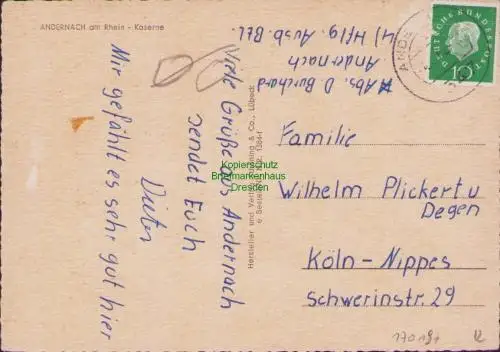 ANDERNACH am Rhein - Kaserne
Viele Grüße aus Andernach
sendet Euch
Dieter
Mir gefählt es sehr gut hier
Abs. D Burchard
Andernach
4) Hflg. Ausb. Btl.
DEUTSCHE BUNDESPOST
10
ANDE
Familie
Wilhelm Plickert u
Degen
Köln-Nippes
Schwerinstr. 29
Hersteller und Verlag & Co., Lübeck
Kopierschutz
Briefmarkenhaus
Dresden